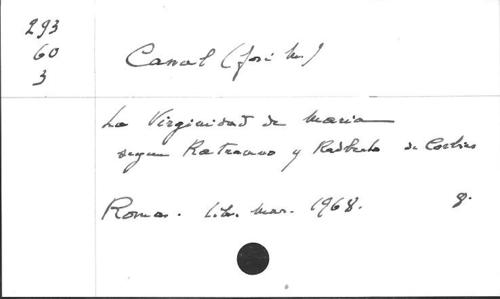 293
60
3
Canal (José M.)
La Virginidad de Maria
segun Ratramno y Radberto de Corbie
Roma. Lib. Mar. 1968. 8.